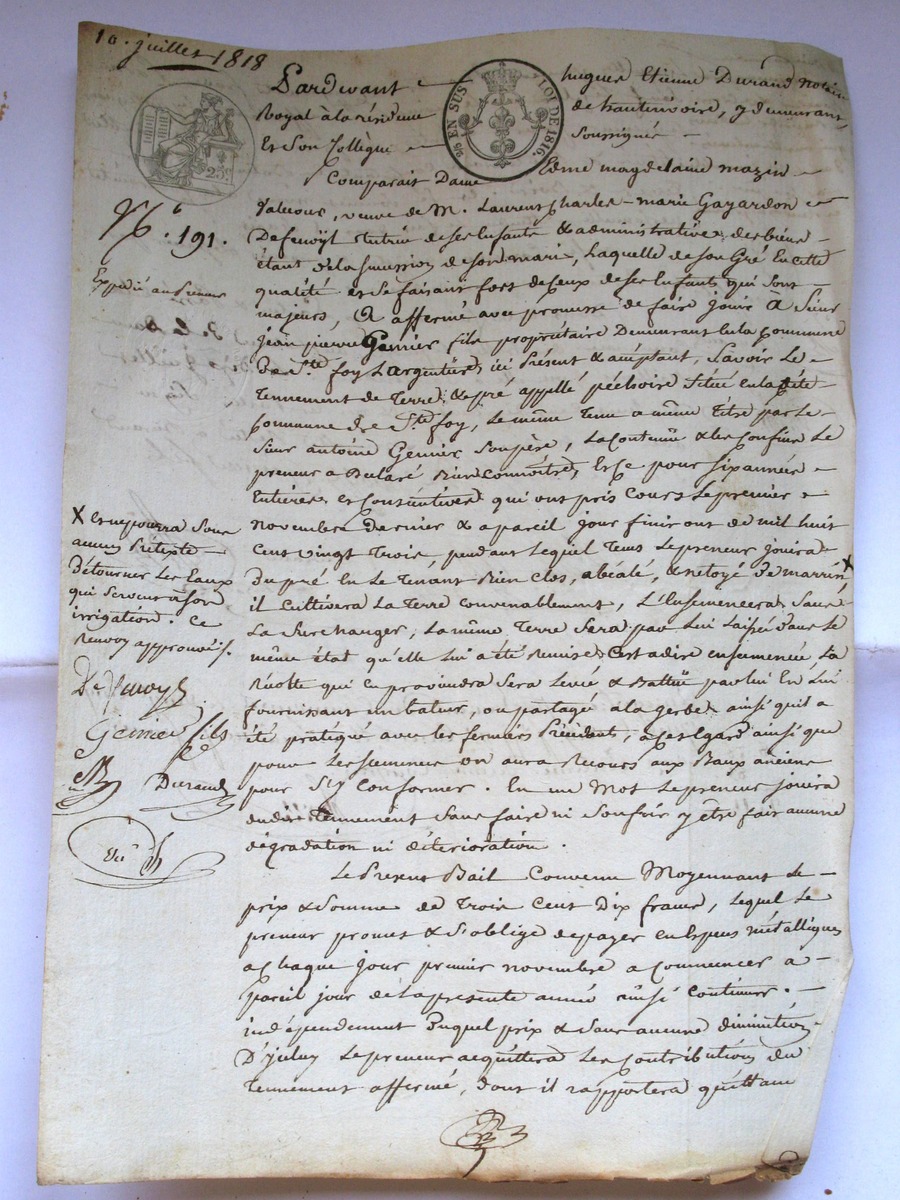 10. juillet 1818
Pardevant hugues Etienne Durand notaire
Royal à la résidence de hauterivoire, y demeurant,
Et Son Collègue Soussignés
9/6 EN SUS LOI DE 1816.
25c
Comparait Dame Edme magdelaine mazin
N.° 191.
veuve de M. Laurent Charles-marie Gayardon
Defenoÿl tutrice de ses Enfants & administratrice des biens
étant de la succession de son marie, Laquelle de son Gré En cette
Expédié au Preneur
qualité et Se faisant fort de ceux de ses Enfants qui sont
majeurs, a affermé avec promesse de faire jouir à Sieur
jean pierre Genier fils propriétaire Demeurant En la Commune
De Ste foy L'argentière, ici Présent & acceptant, Savoir Le
Tennement de Terre, & pré appellé péchoire Situé En la dite
Commune de Ste foy, Le même Tenu a même Titre par Le
Sieur antoine Genier Son père, La Contenue & les Confins Le
preneur a Déclaré Bien Connoitre, Et Ce pour six années
Entières et Consécutives qui ont pris Cours Le premier
novembre Dernier & a pareil jour finiront de mil huit
Cent vingt Trois, pendant Lequel Tems Le preneur jouira
Du pré En Le Tenant Bien Clos, & netoyé De marrin, X
il Cultivera La Terre Convenablement, L'Ensemencera Sans
La Surcharger, La même Terre Sera par Lui Laissée dans Le
même état qu'elle Lui a été Remise, C'est adire ensemencée, La
Récolte qui En proviendra Sera Levée & Battue par lui En Lui
fournissant un bateur, ou partagée a la gerbe ainsi qu'il a
été pratiqué avec les fermiers Précédents, a Cet Egard ainsi que
pour Les Semences on aura Recours aux Baux anciens
pour S'y Conformer. En un Mot Le preneur jouira
dudit Tennement Sans faire ni Souffrir y être fait aucune
dégradation ni déterioration.
X Et ne pourra Sous
aucun Pretexte
Détourner Les Eaux
qui Servent à Son
irrigation. Ce
Renvoy approuvé.
De fenoyl
Genier fils
Durand
Le Présent Bail Convenu Moyennant Le
prix & Somme de Trois Cent Dix francs, Lequel Le
preneur promet & S'oblige de payer en Espèces métalliques
a Chaque jour premier novembre a Commencer a
Pareil jour de la présente année ainsi Continuer.
indépendamment Duquel prix & Sans aucune diminution
D'jceluy Le preneur acquittera Les Contributions du
Tennement affermé, dont il rapportera quittance